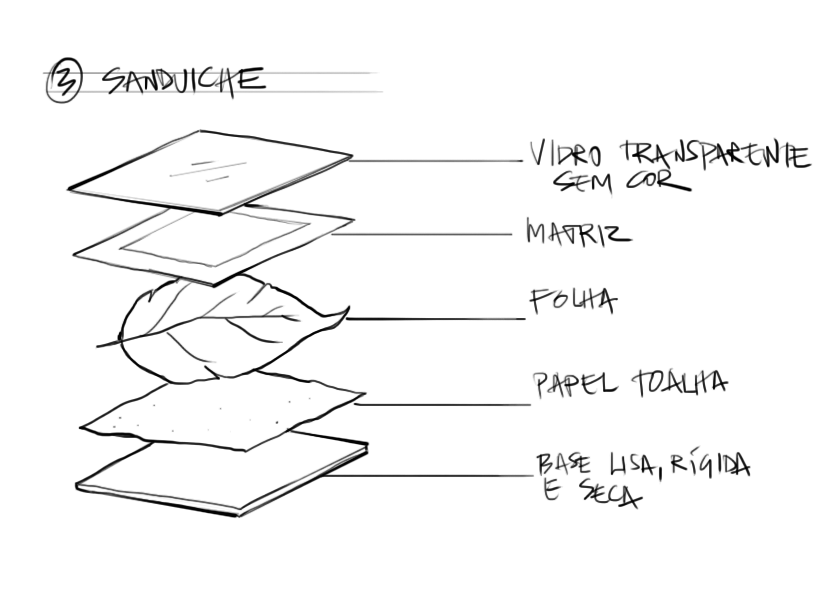 3 SANDUICHE
VIDRO TRANSPARENTE
SEM COR
MATRIZ
FOLHA
PAPEL TOALHA
BASE LISA, RÍGIDA
E SECA